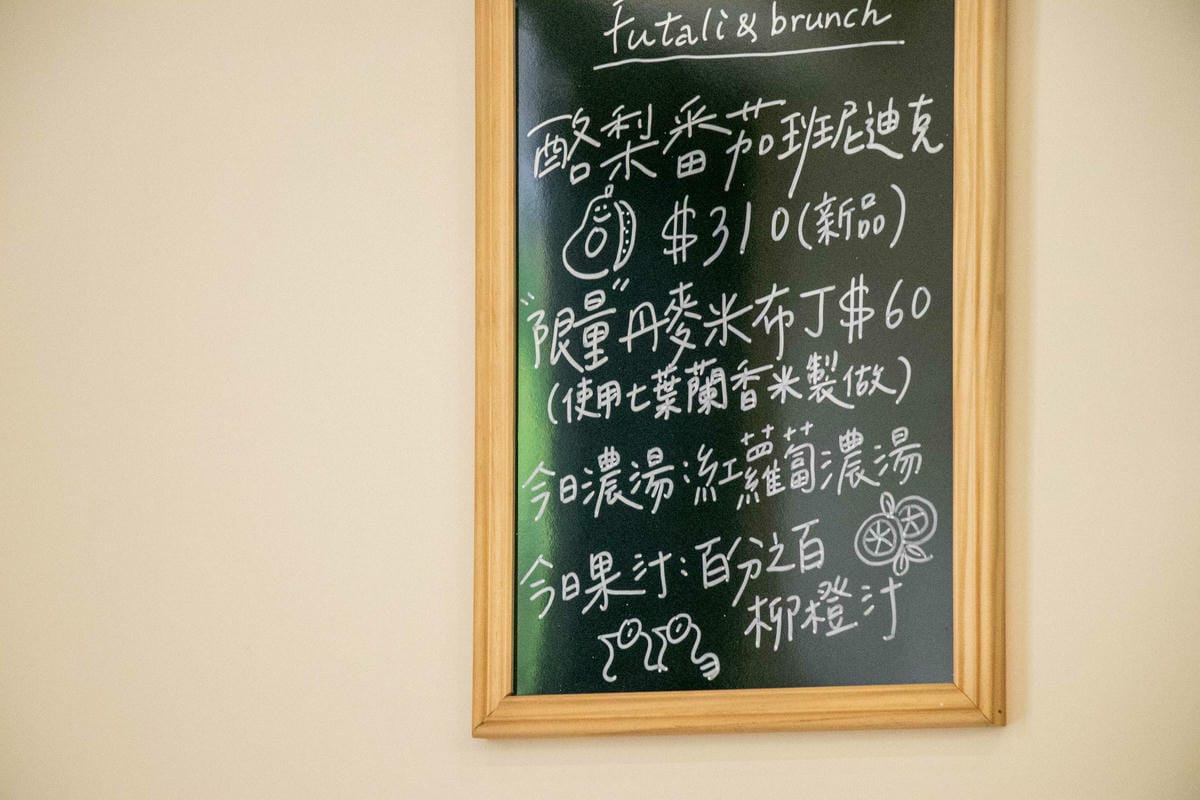 futali & brunch
酪梨番茄班尼迪克
$310(新品)
"限量"丹麥米布丁$60
(使用七葉蘭香米製做)
今日濃湯:紅蘿蔔濃湯
今日果汁:百分之百
柳橙汁